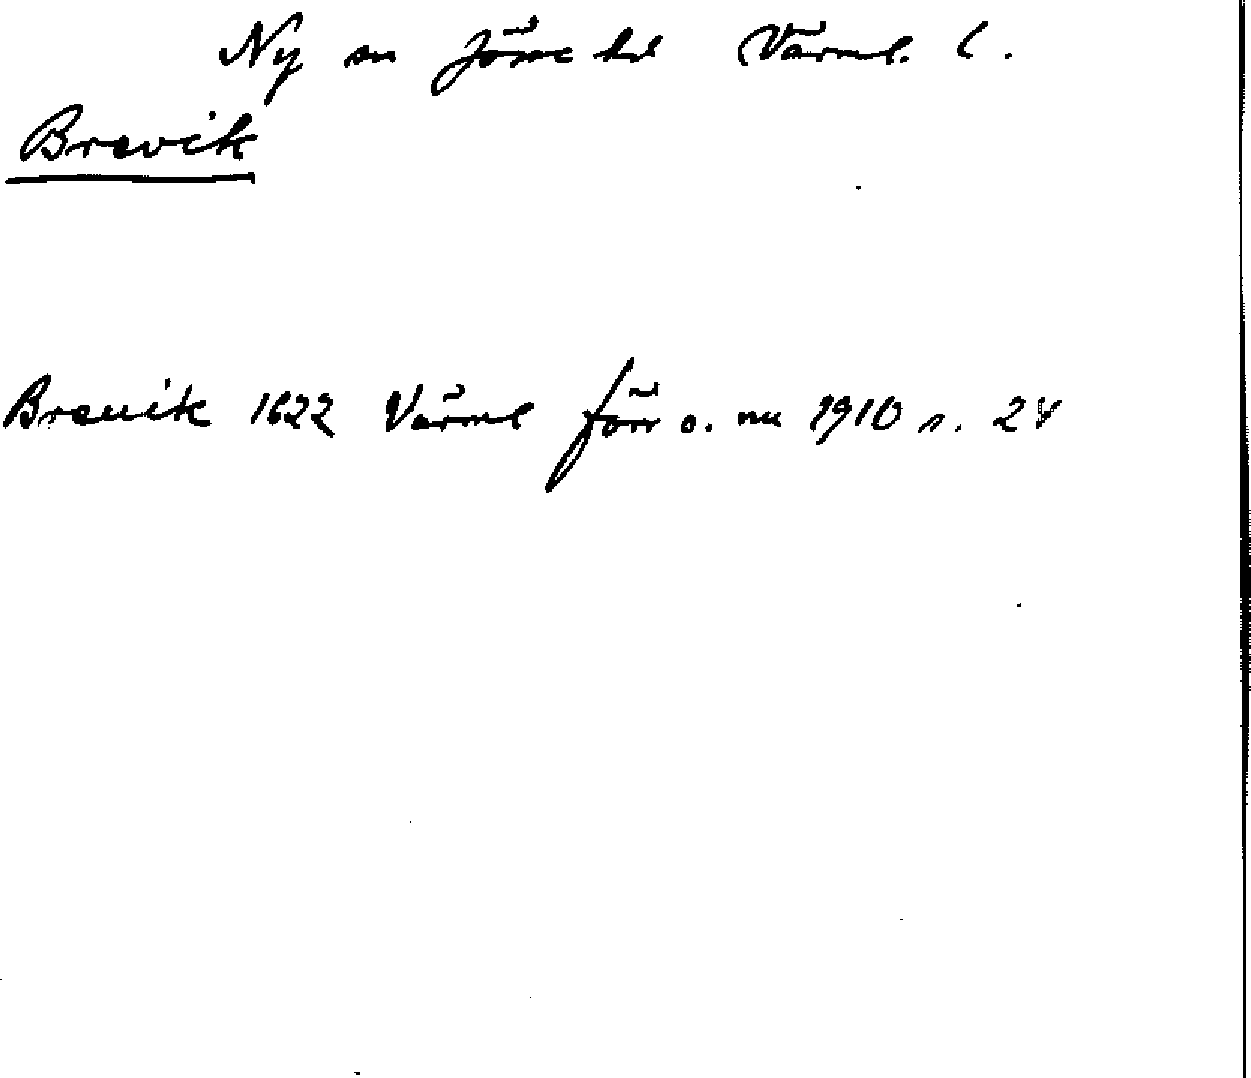 Ny sn Jösse hd Värml. l.
Brevik
Breuik 1622 Värml förr o. nu 1910 s. 24